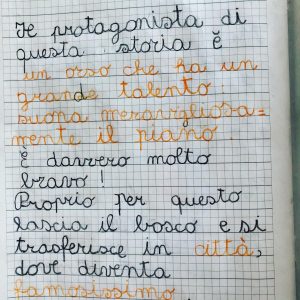 Il protagonista di
questa storia è
un orso che ha un
grande talento.
suona meravigliosa=
mente il piano.
È davvero molto
bravo!
Proprio per questo
lascia il bosco e si
trasferisce in città,
dove diventa
famosissimo